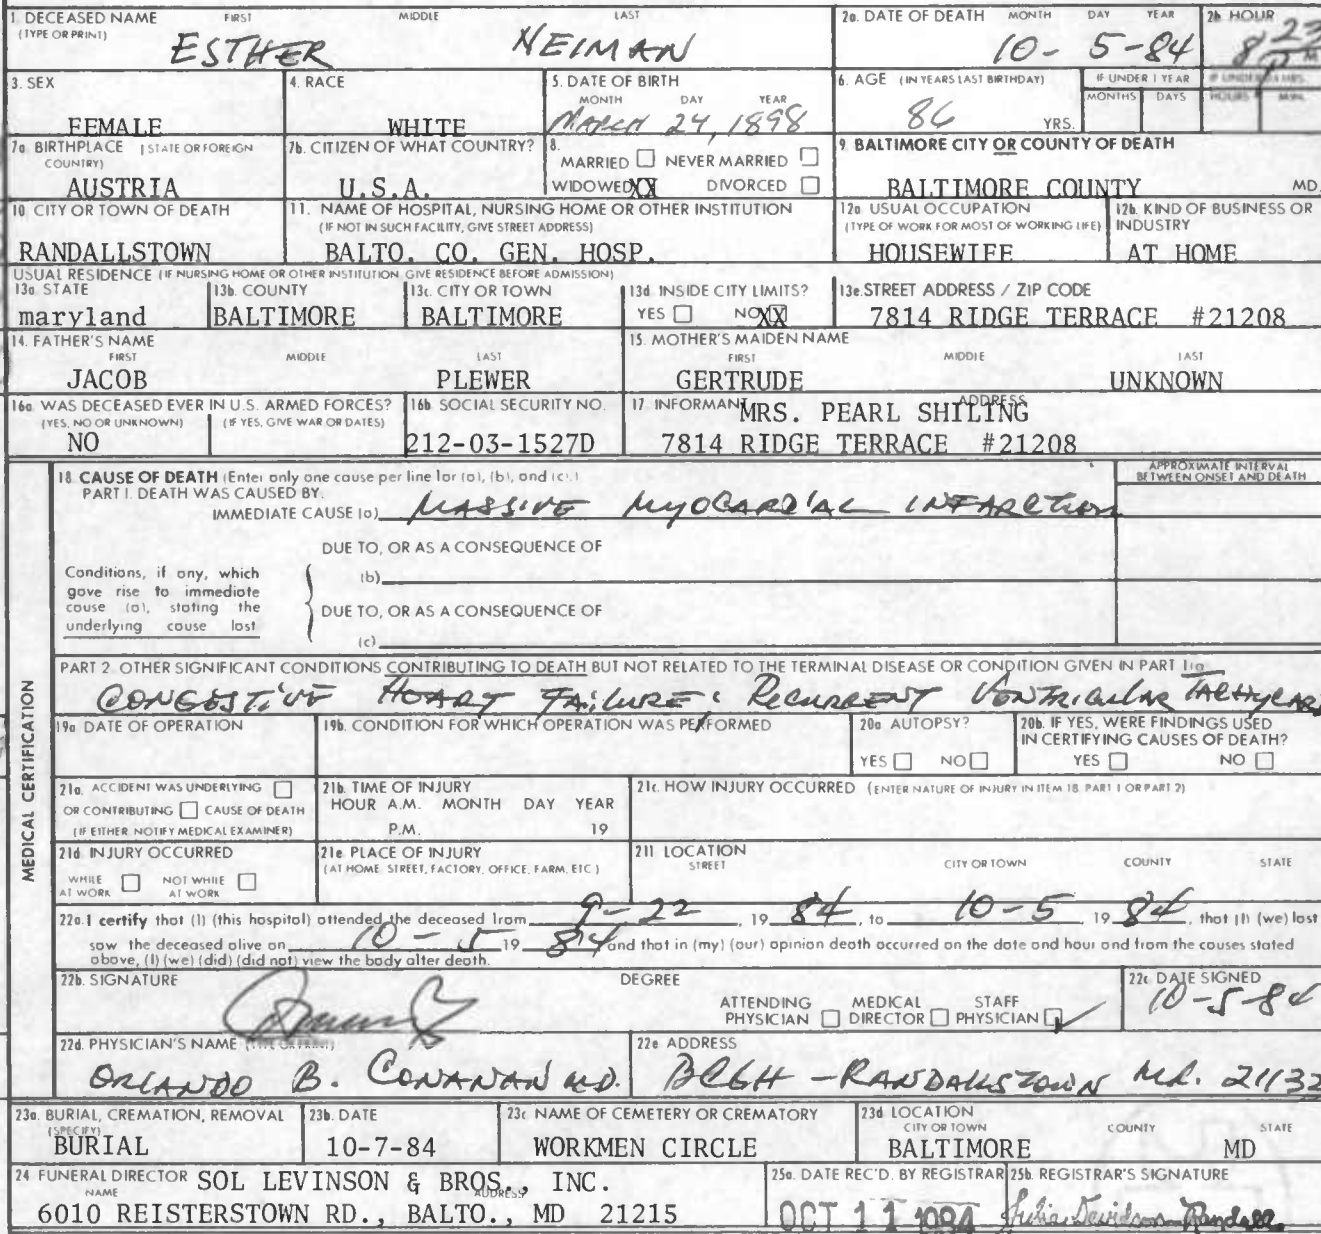 1. DECEASED NAME FIRST MIDDLE LAST
(TYPE OR PRINT)
ESTHER NEIMAN
2a. DATE OF DEATH MONTH DAY YEAR
10-5-84
2b HOUR
8 23 P M
3. SEX
FEMALE
4. RACE
WHITE
5. DATE OF BIRTH
MONTH DAY YEAR
MARCH 24, 1898
6. AGE (IN YEARS LAST BIRTHDAY)
86 YRS.
IF UNDER 1 YEAR
MONTHS DAYS
IF UNDER 24 HRS.
HOURS MIN.
7a. BIRTHPLACE (STATE OR FOREIGN
COUNTRY)
AUSTRIA
7b. CITIZEN OF WHAT COUNTRY?
U.S.A.
8.
MARRIED NEVER MARRIED
WIDOWED XX DIVORCED
9. BALTIMORE CITY OR COUNTY OF DEATH
BALTIMORE COUNTY MD.
10. CITY OR TOWN OF DEATH
RANDALLSTOWN
11. NAME OF HOSPITAL, NURSING HOME OR OTHER INSTITUTION
(IF NOT IN SUCH FACILITY, GIVE STREET ADDRESS)
BALTO. CO. GEN. HOSP.
12a. USUAL OCCUPATION
(TYPE OF WORK FOR MOST OF WORKING LIFE)
HOUSEWIFE
12b. KIND OF BUSINESS OR
INDUSTRY
AT HOME
USUAL RESIDENCE (IF NURSING HOME OR OTHER INSTITUTION GIVE RESIDENCE BEFORE ADMISSION)
13a. STATE
maryland
13b. COUNTY
BALTIMORE
13c. CITY OR TOWN
BALTIMORE
13d INSIDE CITY LIMITS?
YES NO XX
13e. STREET ADDRESS / ZIP CODE
7814 RIDGE TERRACE #21208
14. FATHER'S NAME
FIRST MIDDLE LAST
JACOB PLEWER
15. MOTHER'S MAIDEN NAME
FIRST MIDDLE LAST
GERTRUDE UNKNOWN
16a. WAS DECEASED EVER IN U.S. ARMED FORCES?
(YES, NO OR UNKNOWN) (IF YES, GIVE WAR OR DATES)
NO
16b SOCIAL SECURITY NO.
212-03-1527D
17. INFORMANT ADDRESS
MRS. PEARL SHILING
7814 RIDGE TERRACE #21208
MEDICAL CERTIFICATION
18. CAUSE OF DEATH (Enter only one cause per line for (a), (b), and (c).)
PART I. DEATH WAS CAUSED BY.
IMMEDIATE CAUSE (a) MASSIVE MYOCARDIAL INFARCTION
APPROXIMATE INTERVAL
BETWEEN ONSET AND DEATH
DUE TO, OR AS A CONSEQUENCE OF
Conditions, if any, which
gave rise to immediate
cause (a), stating the
underlying cause last
(b)
DUE TO, OR AS A CONSEQUENCE OF
(c)
PART 2. OTHER SIGNIFICANT CONDITIONS CONTRIBUTING TO DEATH BUT NOT RELATED TO THE TERMINAL DISEASE OR CONDITION GIVEN IN PART I(a)
CONGESTIVE HEART FAILURE; RECURRENT VENTRICULAR TACHYCARD
19a. DATE OF OPERATION
19b. CONDITION FOR WHICH OPERATION WAS PERFORMED
20a. AUTOPSY?
YES NO
20b. IF YES, WERE FINDINGS USED
IN CERTIFYING CAUSES OF DEATH?
YES NO
21a. ACCIDENT WAS UNDERLYING
OR CONTRIBUTING CAUSE OF DEATH
(IF EITHER, NOTIFY MEDICAL EXAMINER)
21b. TIME OF INJURY
HOUR A.M. MONTH DAY YEAR
P.M. 19
21c. HOW INJURY OCCURRED (ENTER NATURE OF INJURY IN ITEM 18 PART 1 OR PART 2)
21d INJURY OCCURRED
WHILE AT WORK NOT WHILE AT WORK
21e. PLACE OF INJURY
(AT HOME, STREET, FACTORY, OFFICE, FARM, ETC.)
21f. LOCATION
STREET CITY OR TOWN COUNTY STATE
22a. I certify that (I) (this hospital) attended the deceased from 9-22 19 84, to 10-5 19 84, that (I) (we) last
saw the deceased alive on 10-5 19 84 and that in (my) (our) opinion death occurred on the date and hour and from the causes stated
above, (I) (we) (did) (did not) view the body after death.
22b. SIGNATURE DEGREE
ATTENDING PHYSICIAN MEDICAL DIRECTOR STAFF PHYSICIAN
22c. DATE SIGNED
10-5-84
22d. PHYSICIAN'S NAME (TYPE OR PRINT)
ORLANDO B. CONANAN M.D.
22e ADDRESS
BCGH - RANDALLSTOWN Md. 21133
23a. BURIAL, CREMATION, REMOVAL
(SPECIFY)
BURIAL
23b. DATE
10-7-84
23c. NAME OF CEMETERY OR CREMATORY
WORKMEN CIRCLE
23d. LOCATION
CITY OR TOWN COUNTY STATE
BALTIMORE MD
24. FUNERAL DIRECTOR SOL LEVINSON & BROS., INC.
NAME ADDRESS
6010 REISTERSTOWN RD., BALTO., MD 21215
25a. DATE REC'D. BY REGISTRAR
OCT 11 1984
25b. REGISTRAR'S SIGNATURE
Julia Davidson-Randall